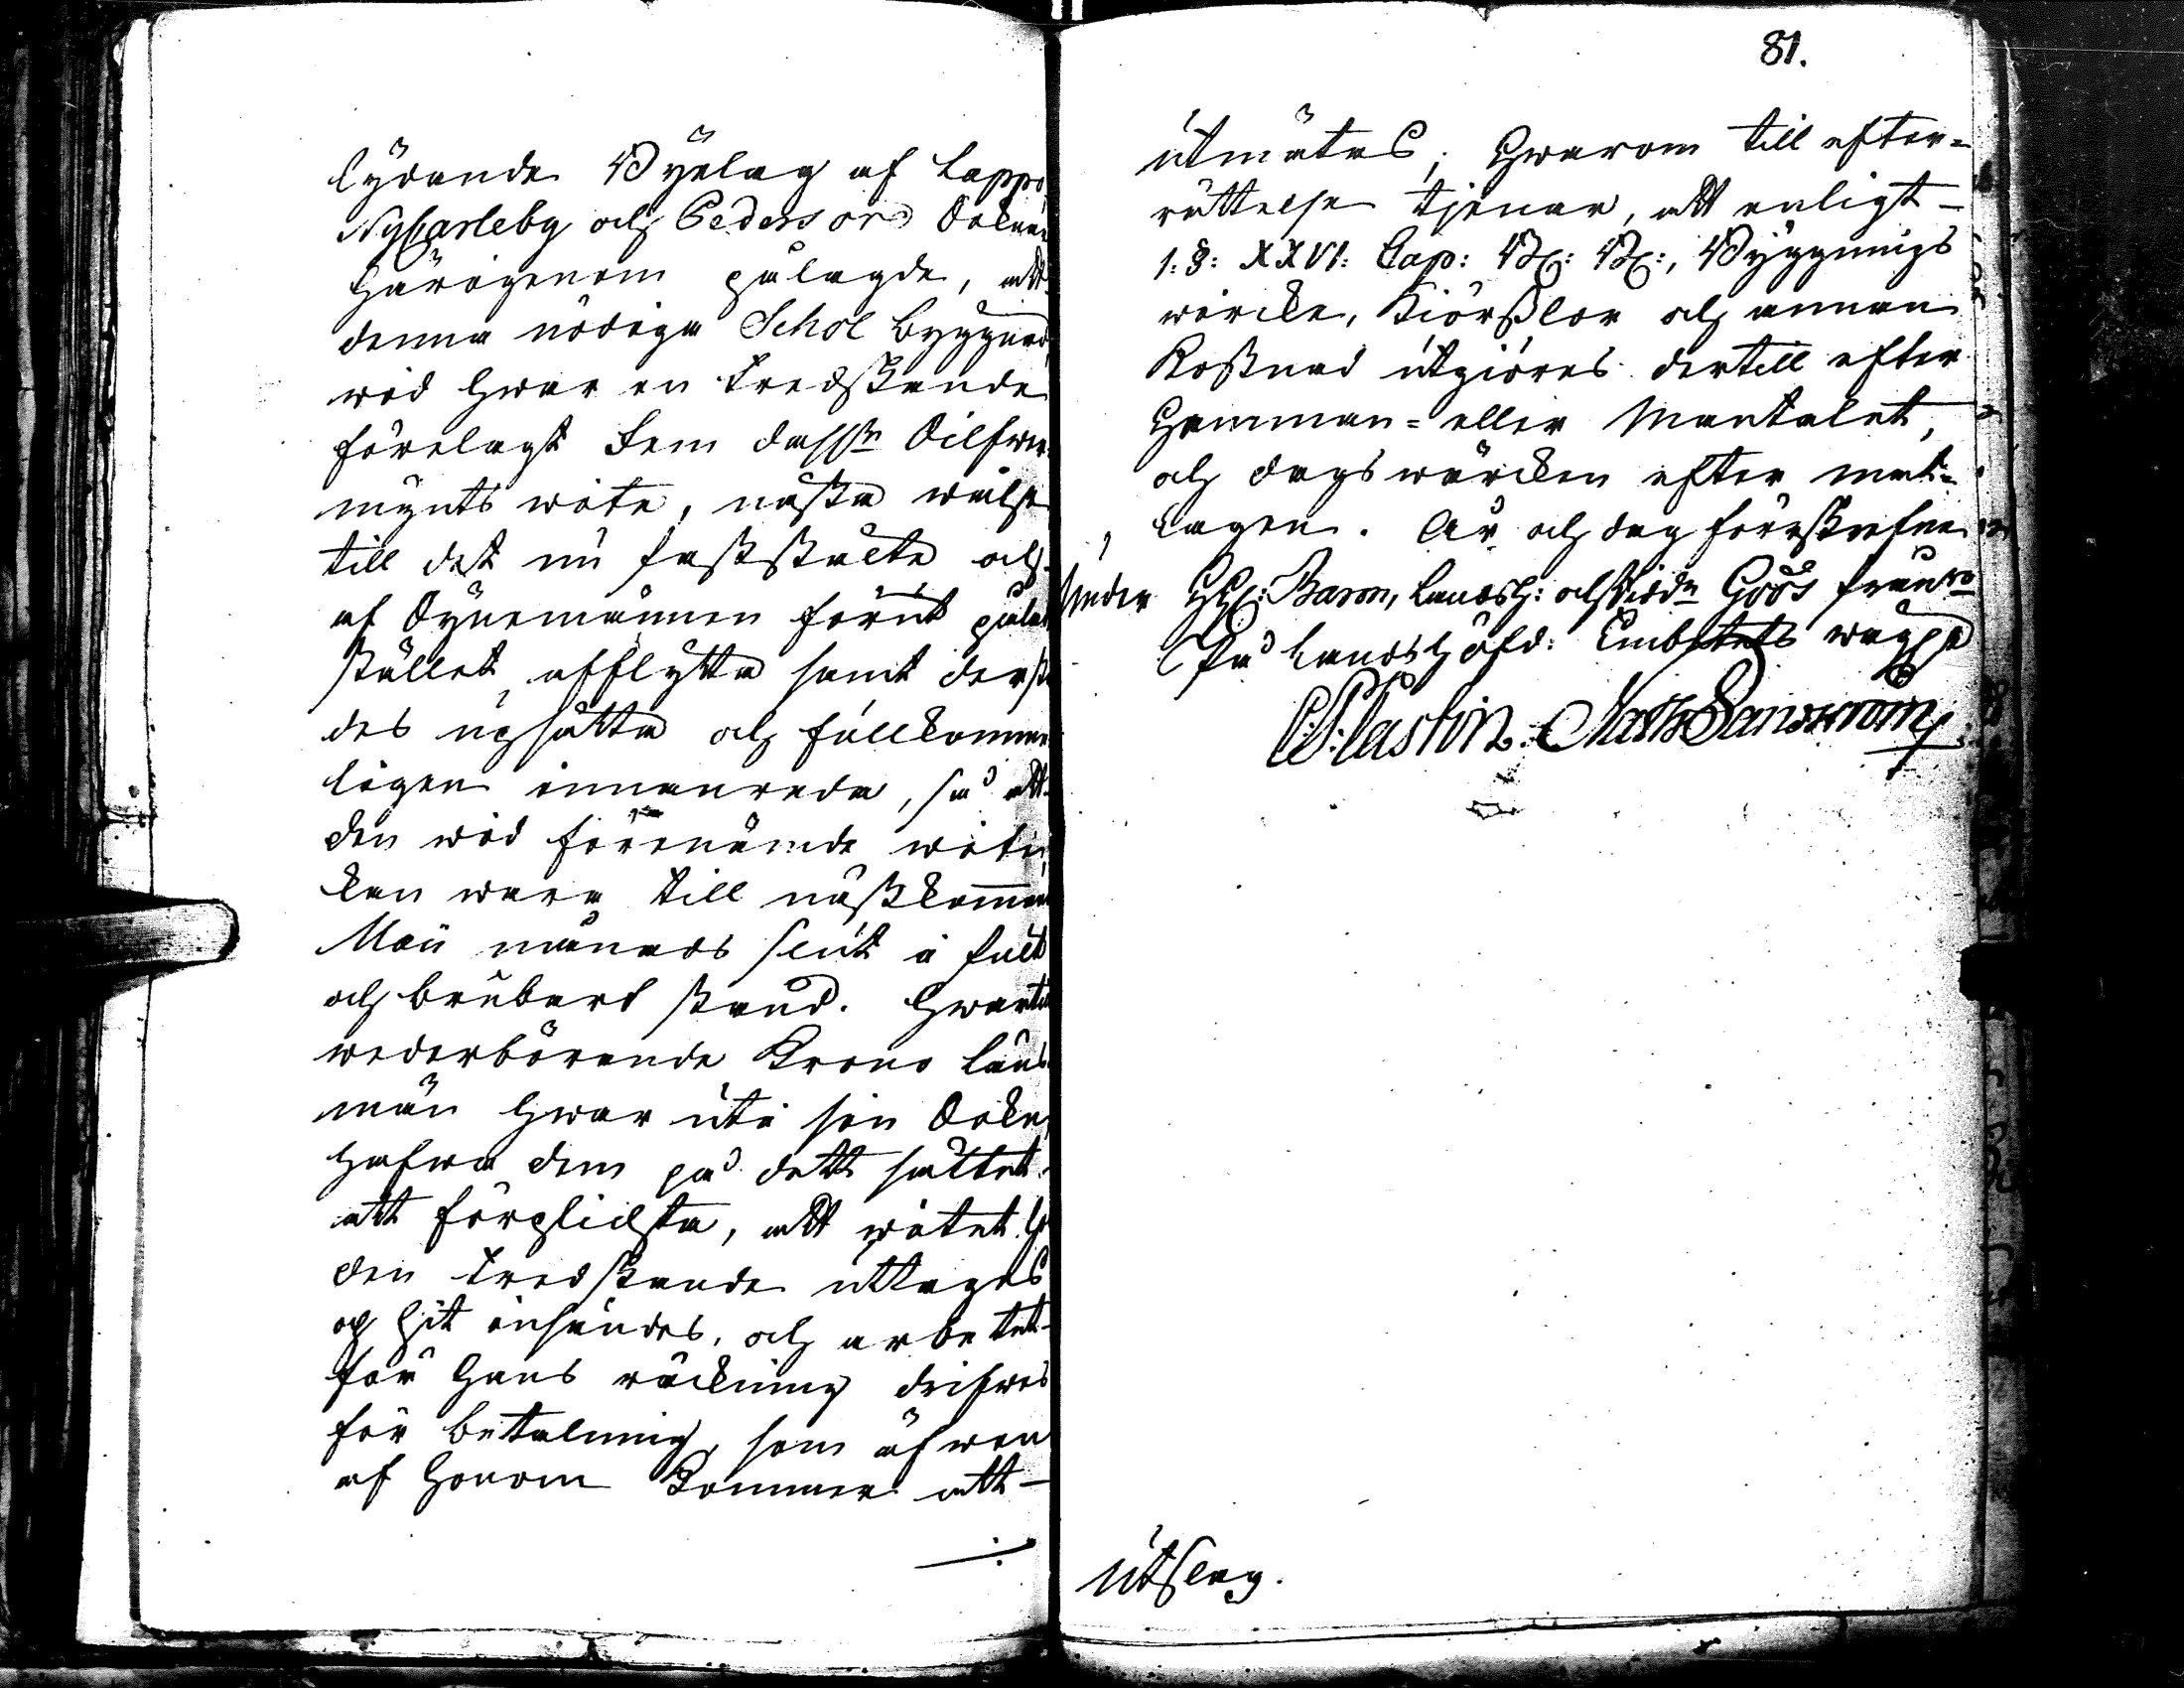 lydande Byelag af Lappo
NyCarleby och Pedersöre Sokn
härigenom pålagde, att
denna nödiga Schol byggnad
wid hwar en tredskande
förelagt Fem da. S.m. Silfwer
mynts wite, måste wälse
till det nu fastställte och
af Synemännen förut
stället afflytta samt der st
des upsätta och fullkomme
ligen innanreda, så att
den wid förenämde wite
kan wara till nästkomman
Maii månads slut i fult
och brukbart stand. Hwartil
wederbörande Krono Läns
män hwar uti sin Sokn
hafwa dem på dett sättet
att förplickta, att witet af
den tredskande uttages
och hit insändes, och arbetet
för hans räckning drifwes
för betalning, som äfwen
af honom kommer att
81.
utmätas; Hwarom till efter=
rättelse tjenar, att enligt
1: §: XXVI: Cap: B: B:, Byggnings
wircke, Kiörßlor och annan
Kostnad utgiöres dertill efter
Hemman= eller Mantalet,
och dagswärcken efter mat=
lagen. År och dag förrskrefne
Under H: Baron, Landsh: och Ridd:n Göös frånwaro
På Landshöfd: Embetets wägnar
Mats Sandström
Utslag.